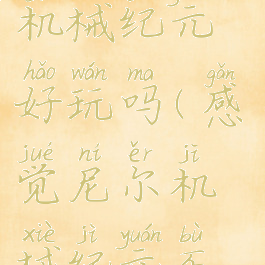 机械纪元
hǎo wán ma gǎn
好玩吗(感
jué ní ěr jī
觉尼尔机
xiè jì yuán bù
械纪元不